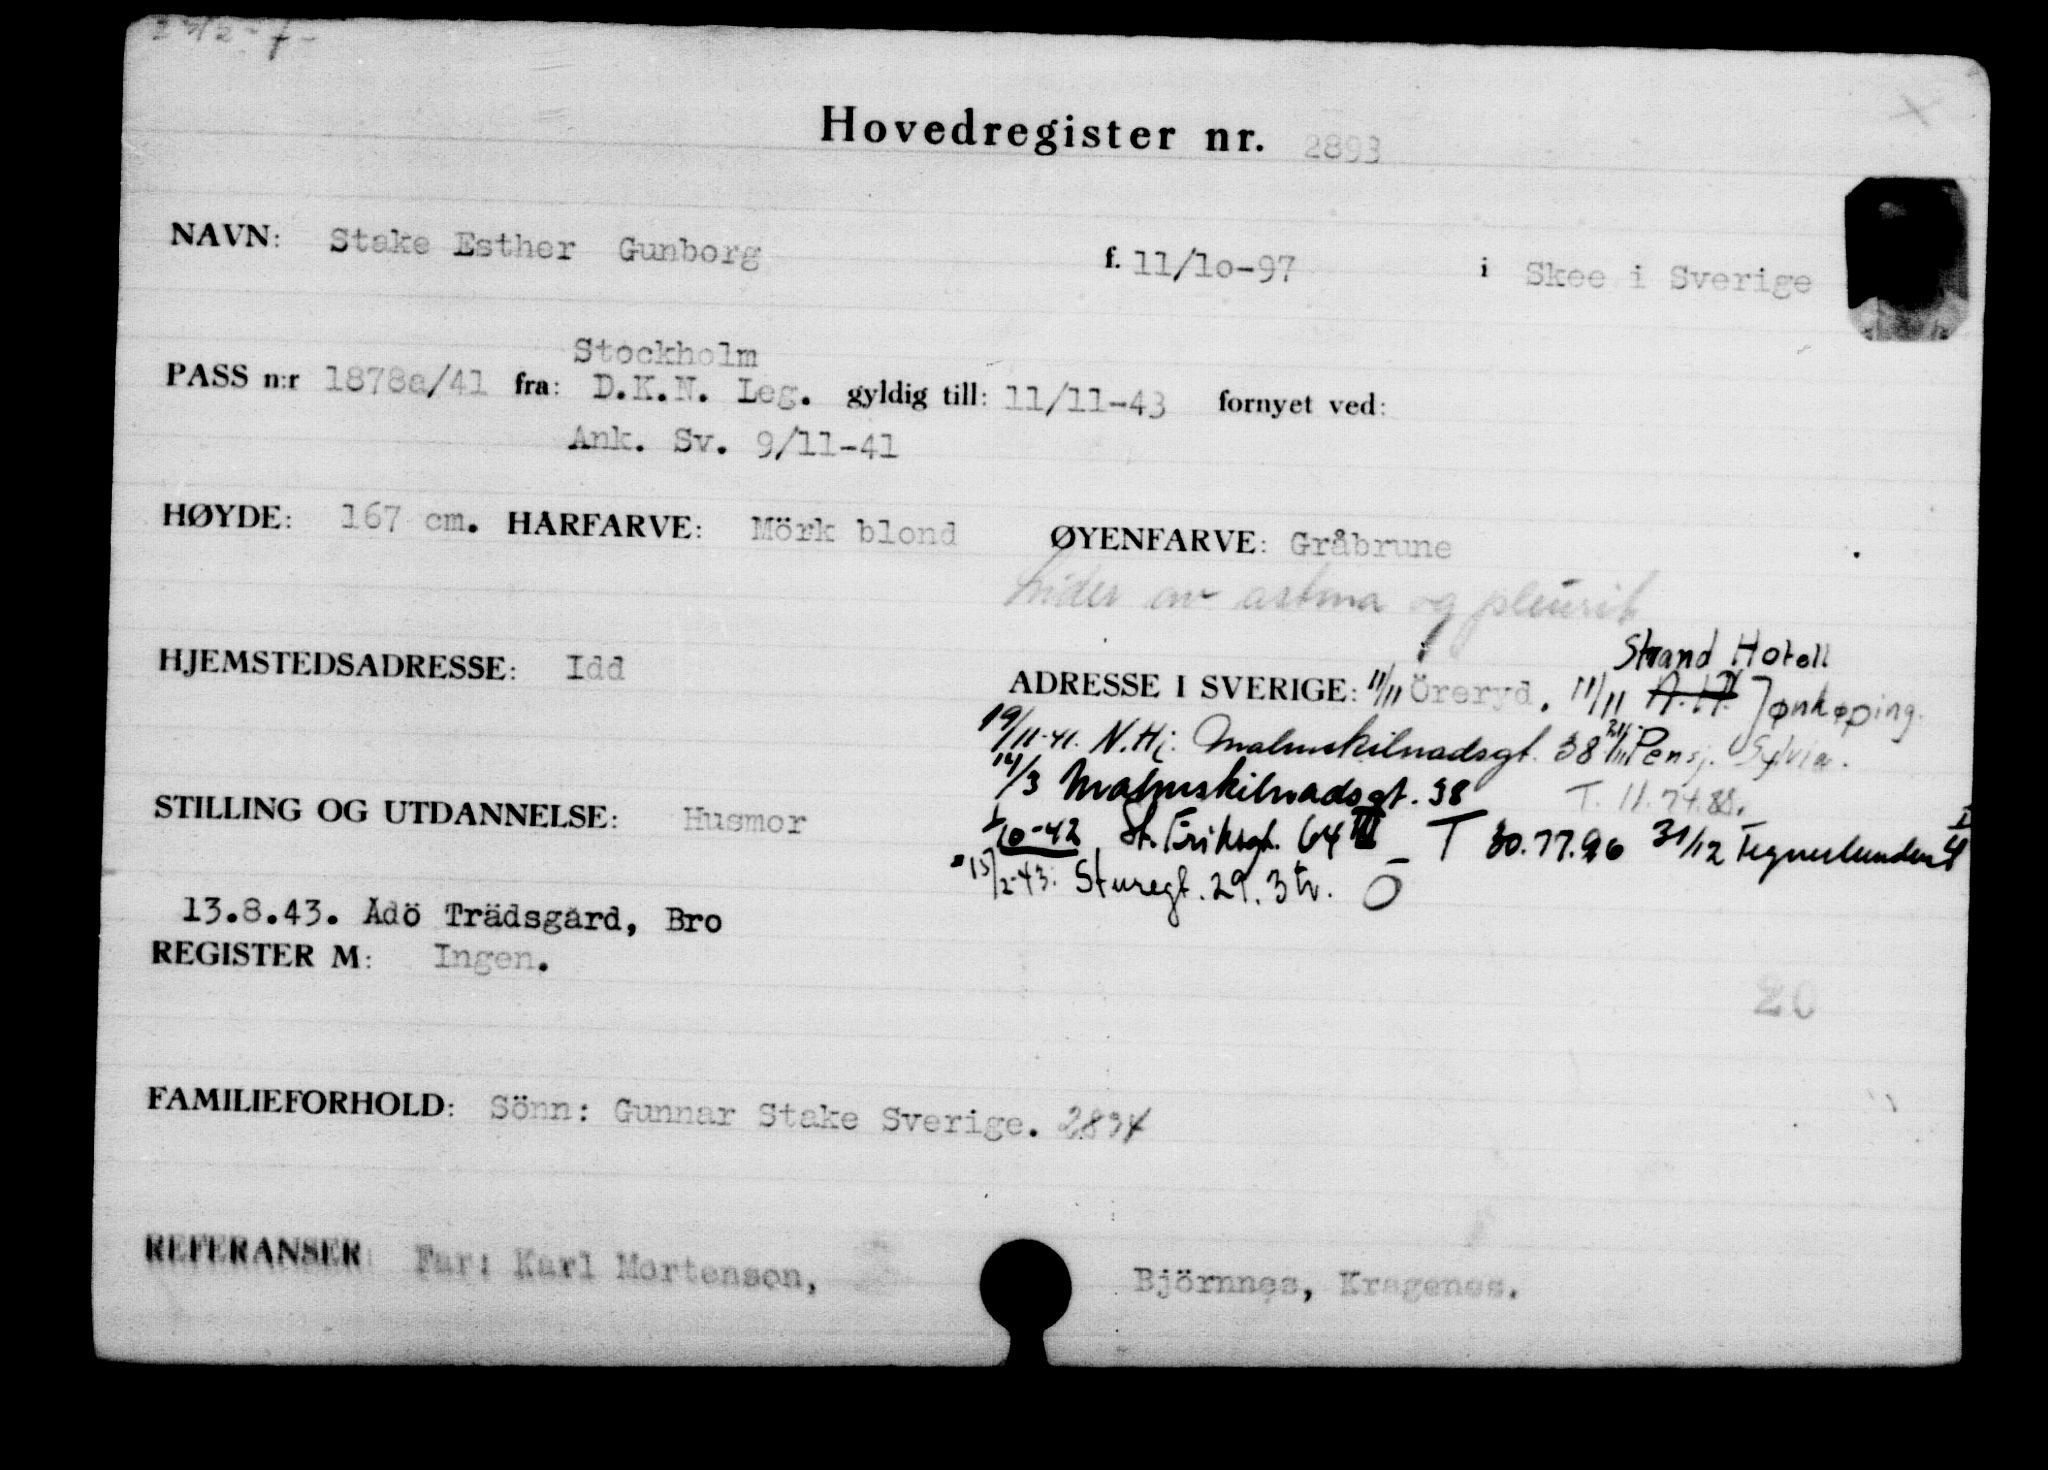 Hovedregister nr. 2893
NAVN: Stake Esther Gunborg f. 11/10-97 i Skee i Sverige
Stockholm
PASS n:r 1878a/41 fra: D.K.N. Leg. gyldig till: 11/11-43 fornyet ved:
Ank. Sv. 9/11-41
HØYDE: 167 cm. HÅRFARVE: Mörk blond ØYENFARVE: Gråbrune
Lider av astma og pleurit
Strand Hotell
HJEMSTEDSADRESSE: Idd ADRESSE I SVERIGE: 11/11 Öreryd. 11/11 Jønkøping.
19/11-41. N.Hj. Malmskilnadsgt. 38 Pensj. Sylvia.
14/3 Malmskilnadsgt. 38 T. 11.74.88.
STILLING OG UTDANNELSE: Husmor
10-42 St. Eriksgt. 64 III T 30.77.96 31/12 Tegnerlunden 4 I
15/2-43. Sturegt. 29. 3 tr.
13.8.43. Ådö Trädsgård, Bro
REGISTER M: Ingen.
20
FAMILIEFORHOLD: Sönn: Gunnar Stake Sverige. 2894
REFERANSER Far: Karl Mortenson, Björnnes, Kragenes.